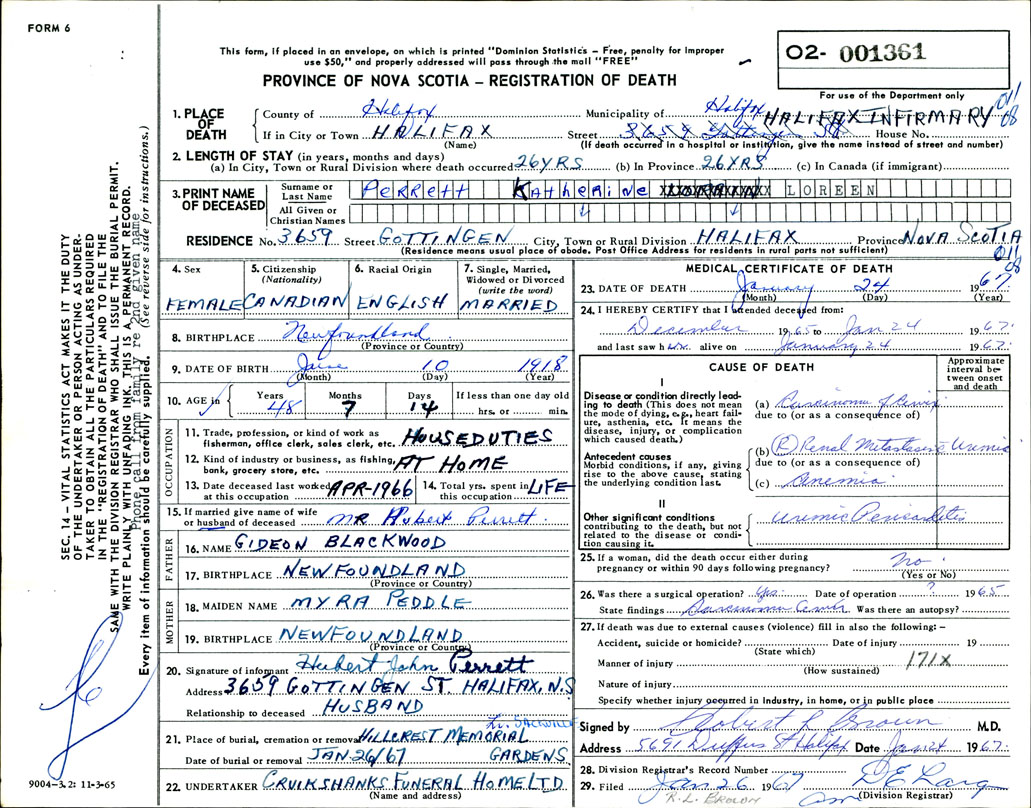 FORM 6
This form, if placed in an envelope, on which is printed "Dominion Statistics – Free, penalty for improper
use $50," and properly addressed will pass through the mail "FREE"
PROVINCE OF NOVA SCOTIA – REGISTRATION OF DEATH
O2- 001361
For use of the Department only
011
08
1. PLACE OF DEATH
County of Halifax Municipality of Halifax HALIFAX INFIRMARY
If in City or Town HALIFAX Street 3659 Gottingen St House No.
(Name) (If death occurred in a hospital or institution, give the name instead of street and number)
2. LENGTH OF STAY (in years, months and days)
(a) In City, Town or Rural Division where death occurred 26 YRS (b) In Province 26 YRS (c) In Canada (if immigrant)
3. PRINT NAME OF DECEASED
Surname or Last Name PERRETT KATHERINE LOREEN
All Given or Christian Names
RESIDENCE No. 3659 Street GOTTINGEN City, Town or Rural Division HALIFAX Province NOVA SCOTIA
(Residence means usual place of abode. Post Office Address for residents in rural parts not sufficient)
011
08
4. Sex
FEMALE
5. Citizenship (Nationality)
CANADIAN
6. Racial Origin
ENGLISH
7. Single, Married, Widowed or Divorced (write the word)
MARRIED
8. BIRTHPLACE Newfoundland
(Province or Country)
9. DATE OF BIRTH June 10 1918
(Month) (Day) (Year)
10. AGE in Years Months Days If less than one day old
48 7 14 hrs. or min.
OCCUPATION
11. Trade, profession, or kind of work as
fisherman, office clerk, sales clerk, etc. HOUSEDUTIES
12. Kind of industry or business, as fishing,
bank, grocery store, etc. AT HOME
13. Date deceased last worked
at this occupation APR-1966
14. Total yrs. spent in
this occupation LIFE
15. If married give name of wife
or husband of deceased MR Hubert Perrett
FATHER
16. NAME GIDEON BLACKWOOD
17. BIRTHPLACE NEWFOUNDLAND
(Province or Country)
MOTHER
18. MAIDEN NAME MYRA PEDDLE
19. BIRTHPLACE NEWFOUNDLAND
(Province or Country)
20. Signature of informant Hubert John Perrett
Address 3659 GOTTINGEN ST. HALIFAX, N.S
Relationship to deceased HUSBAND
Lr. SACKVILLE
21. Place of burial, cremation or removal HILLCREST MEMORIAL
Date of burial or removal JAN 26/67 GARDENS
22. UNDERTAKER CRUIKSHANKS FUNERAL HOME LTD
(Name and address)
MEDICAL CERTIFICATE OF DEATH
23. DATE OF DEATH January 24 1967
(Month) (Day) (Year)
24. I HEREBY CERTIFY that I attended deceased from:
December 1965 to Jan 24 1967
and last saw her alive on January 24 1967
CAUSE OF DEATH
Approximate interval between onset and death
I
Disease or condition directly leading to death (This does not mean
the mode of dying, e.g., heart failure, asthenia, etc. It means the
disease, injury, or complication
which caused death.)
(a) Carcinoma of Cervix
due to (or as a consequence of)
Antecedent causes
Morbid conditions, if any, giving
rise to the above cause, stating
the underlying condition last.
(b) (R) Renal Metastasis Uremia
due to (or as a consequence of)
(c) Anemia
II
Other significant conditions
contributing to the death, but not
related to the disease or condition causing it.
Uremic Pericarditis
25. If a woman, did the death occur either during
pregnancy or within 90 days following pregnancy? No
(Yes or No)
26. Was there a surgical operation? Yes Date of operation ? 1965
State findings Carcinoma Cervix Was there an autopsy?
27. If death was due to external causes (violence) fill in also the following: –
Accident, suicide or homicide? Date of injury 19
(State which)
Manner of injury 171X
(How sustained)
Nature of injury
Specify whether injury occurred in industry, in home, or in public place
Signed by Robert L Brown M.D.
Address 5691 Duffus St Halifax Date Jan 24 1967
28. Division Registrar's Record Number
29. Filed Jan 26 1967
R. L. BROWN (Division Registrar)
SEC. 14 – VITAL STATISTICS ACT MAKES IT THE DUTY
OF THE UNDERTAKER OR PERSON ACTING AS UNDER-
TAKER TO OBTAIN ALL THE PARTICULARS REQUIRED
IN THE "REGISTRATION OF DEATH" AND TO FILE THE
SAME WITH THE DIVISION REGISTRAR WHO SHALL ISSUE THE BURIAL PERMIT.
WRITE PLAINLY WITH UNFADING INK. THIS IS A PERMANENT RECORD.
Phone call from family re 2nd given name
Every item of information should be carefully supplied. (See reverse side for instructions.)
9004–3.2: 11-3-65